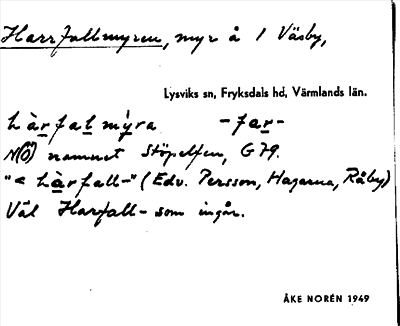 Harrfallmyren, myr å 1 Väsby,
Lysviks sn, Fryksdals hd, Värmlands län.
hàrfalmýra -far-
N(Ö) namnet Stöpelfen, G79.
"< hàrfall-" (Edv. Persson, Hagarna, Råby)
Väl Harfall- som ingår.
ÅKE NORÉN 1949